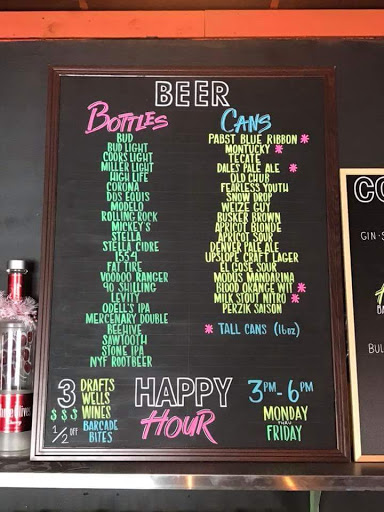 BEER
BOTTLES
BUD
BUD LIGHT
COORS LIGHT
MILLER LIGHT
HIGH LIFE
CORONA
DOS EQUIS
MODELO
ROLLING ROCK
MICKEY'S
STELLA
STELLA CIDRE
1554
FAT TIRE
VOODOO RANGER
90 SHILLING
LEVITY
ODELL'S IPA
MERCENARY DOUBLE
BEEHIVE
SAWTOOTH
STONE IPA
NYF ROOTBEER
CANS
PABST BLUE RIBBON *
MONTUCKY *
TECATE
DALE'S PALE ALE *
OLD CHUB
FEARLESS YOUTH
SNOW DROP
WEIZE GUY
BUSKER BROWN
APRICOT BLONDE
APRICOT SOUR
DENVER PALE ALE
UPSLOPE CRAFT LAGER
EL GOSE SOUR
MODUS MANDARINA
BLOOD ORANGE WIT *
MILK STOUT NITRO *
PERZIK SAISON
* TALL CANS (16oz)
3 DRAFTS
WELLS
$ $ $ WINES
1/2 OFF BARCADE
BITES
HAPPY
HOUR
3PM-6PM
MONDAY
THRU
FRIDAY
GIN